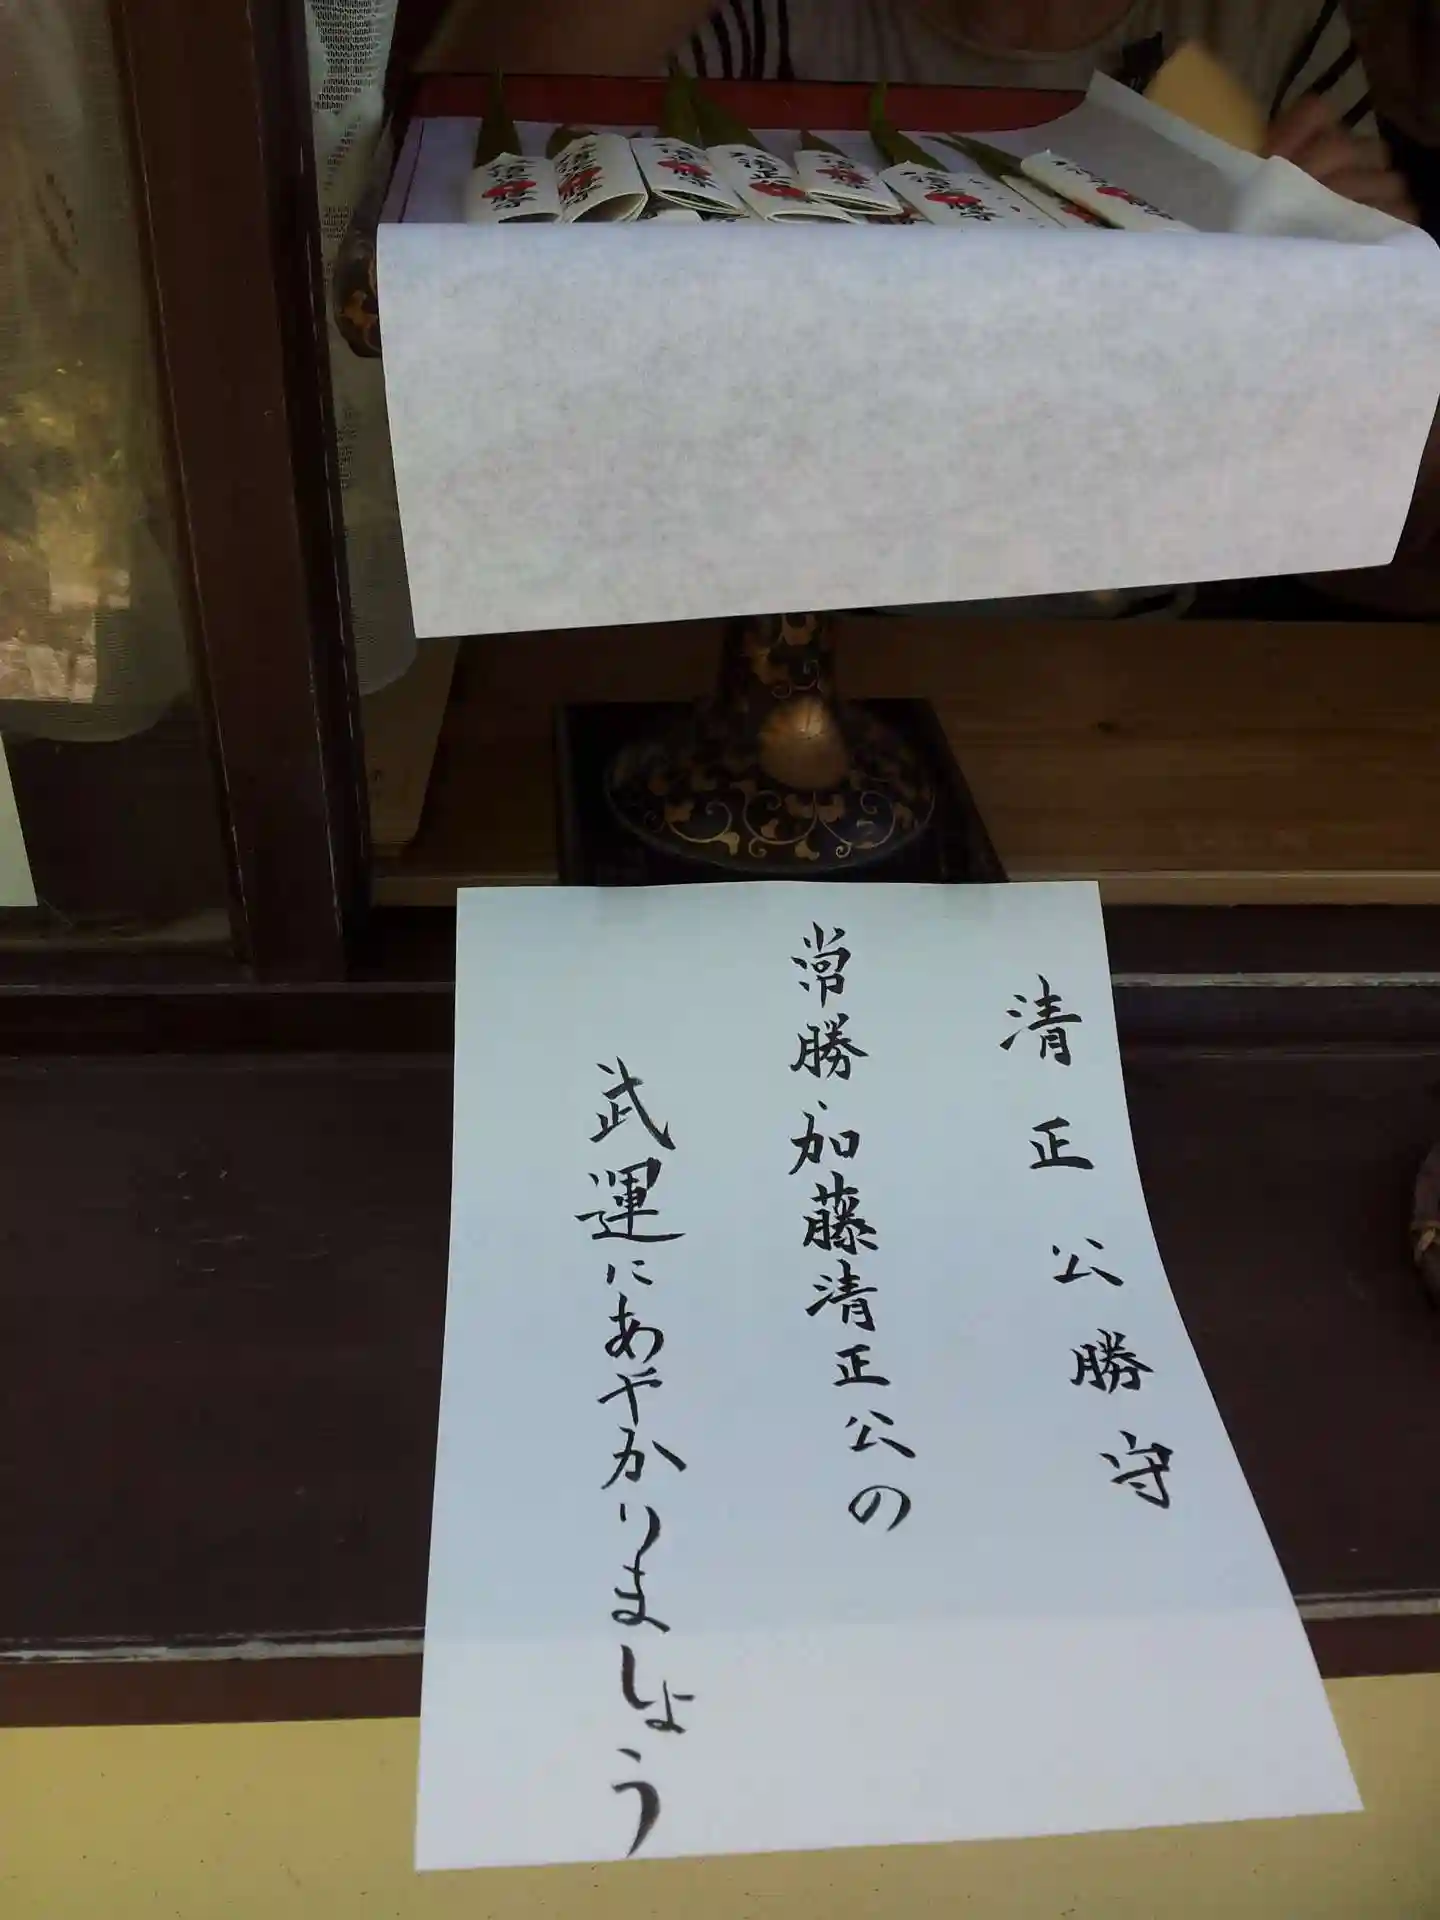 清正公勝守
常勝加藤清正公の
武運にあやかりましょう